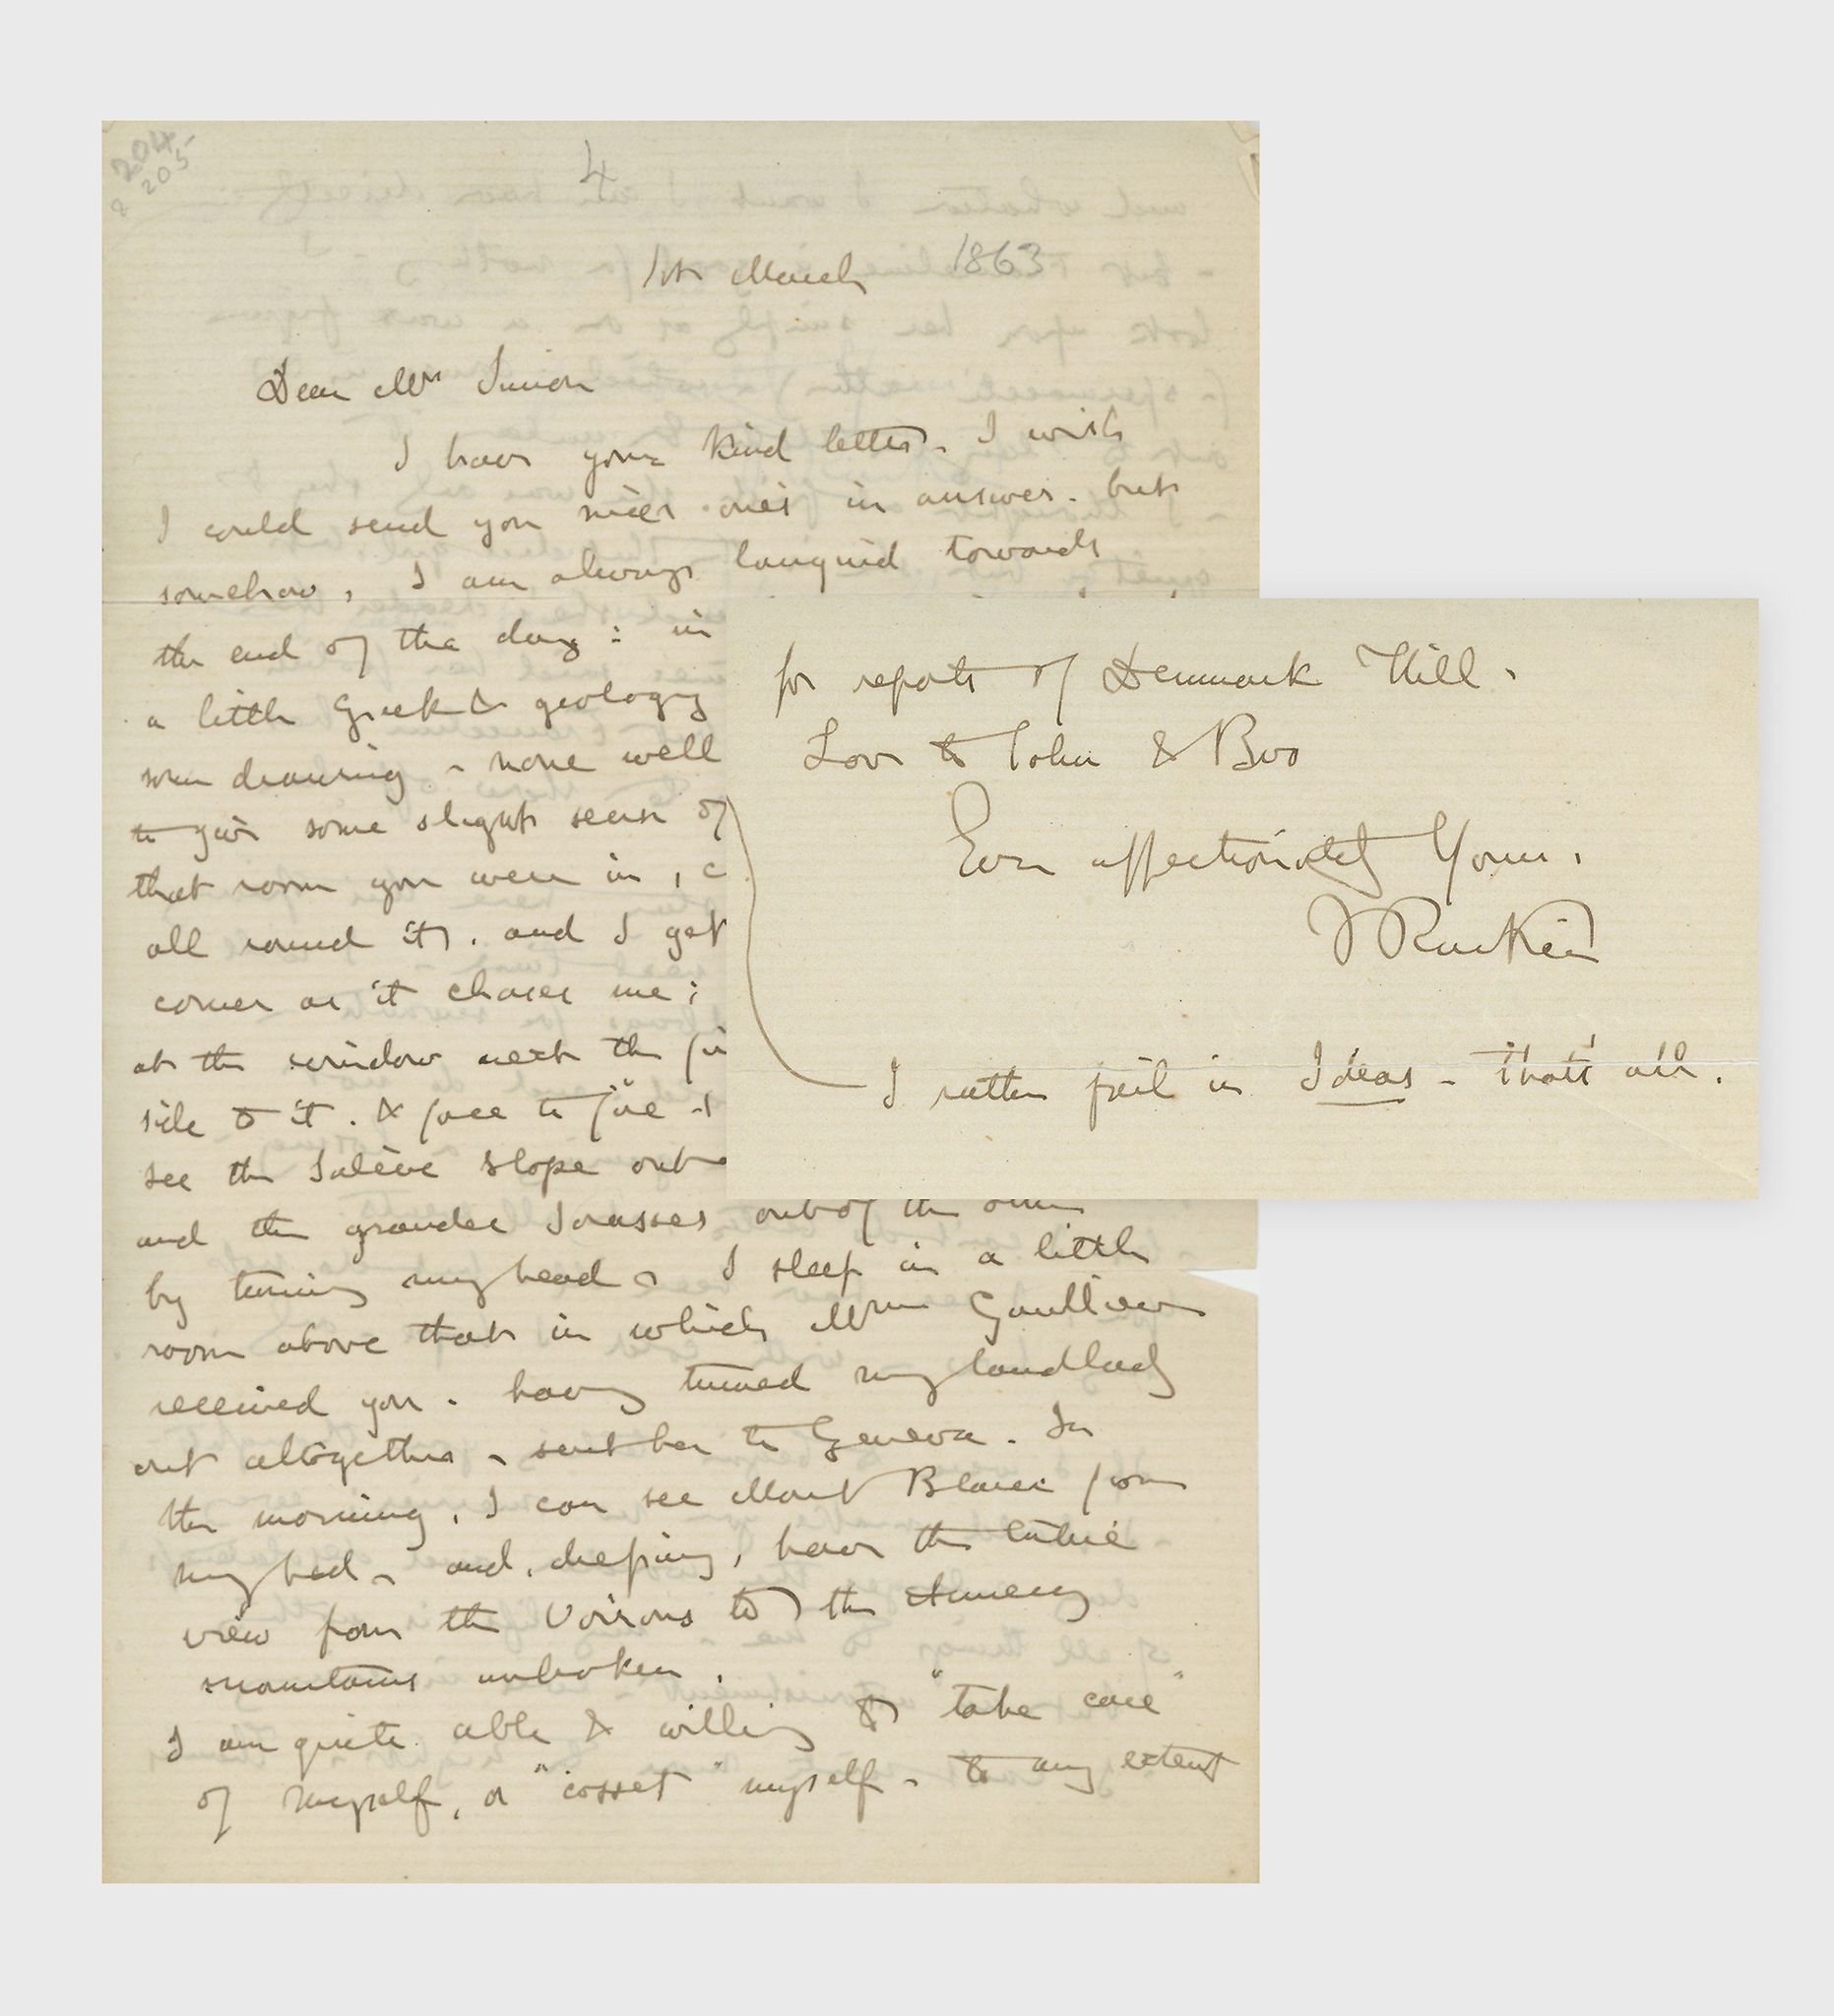 204-
& 205
4
1st March 1863
Dear Mrs Simon
I have your kind letter. I wish
I could send you nicer ones in answer. but
somehow, I am always languid towards
the end of the day: in
a little Greek & geology
some drawing - none well
to give some slight sense of
that room you were in,
all round it, and I get
corner as it chases me;
at the window next the
side to it. & face to
see the Salève slope out
and the grandes Jorasses out of the other
by turning my head - I sleep in a little
room above that in which Mme Gaullieur
received you. having turned my landlady
out altogether - sent her to Geneva. In
the morning, I can see Mont Blanc from
my bed - and, dressing, have the entire
view from the Voirons to the Annecy
mountains unbroken.
I am quite able & willing to "take care"
of myself, or "cosset" myself - to any extent
for reports of Denmark Hill.
Love to John & Boo
Ever affectionately Yours.
J Ruskin
I rather fail in Ideas - that's all.